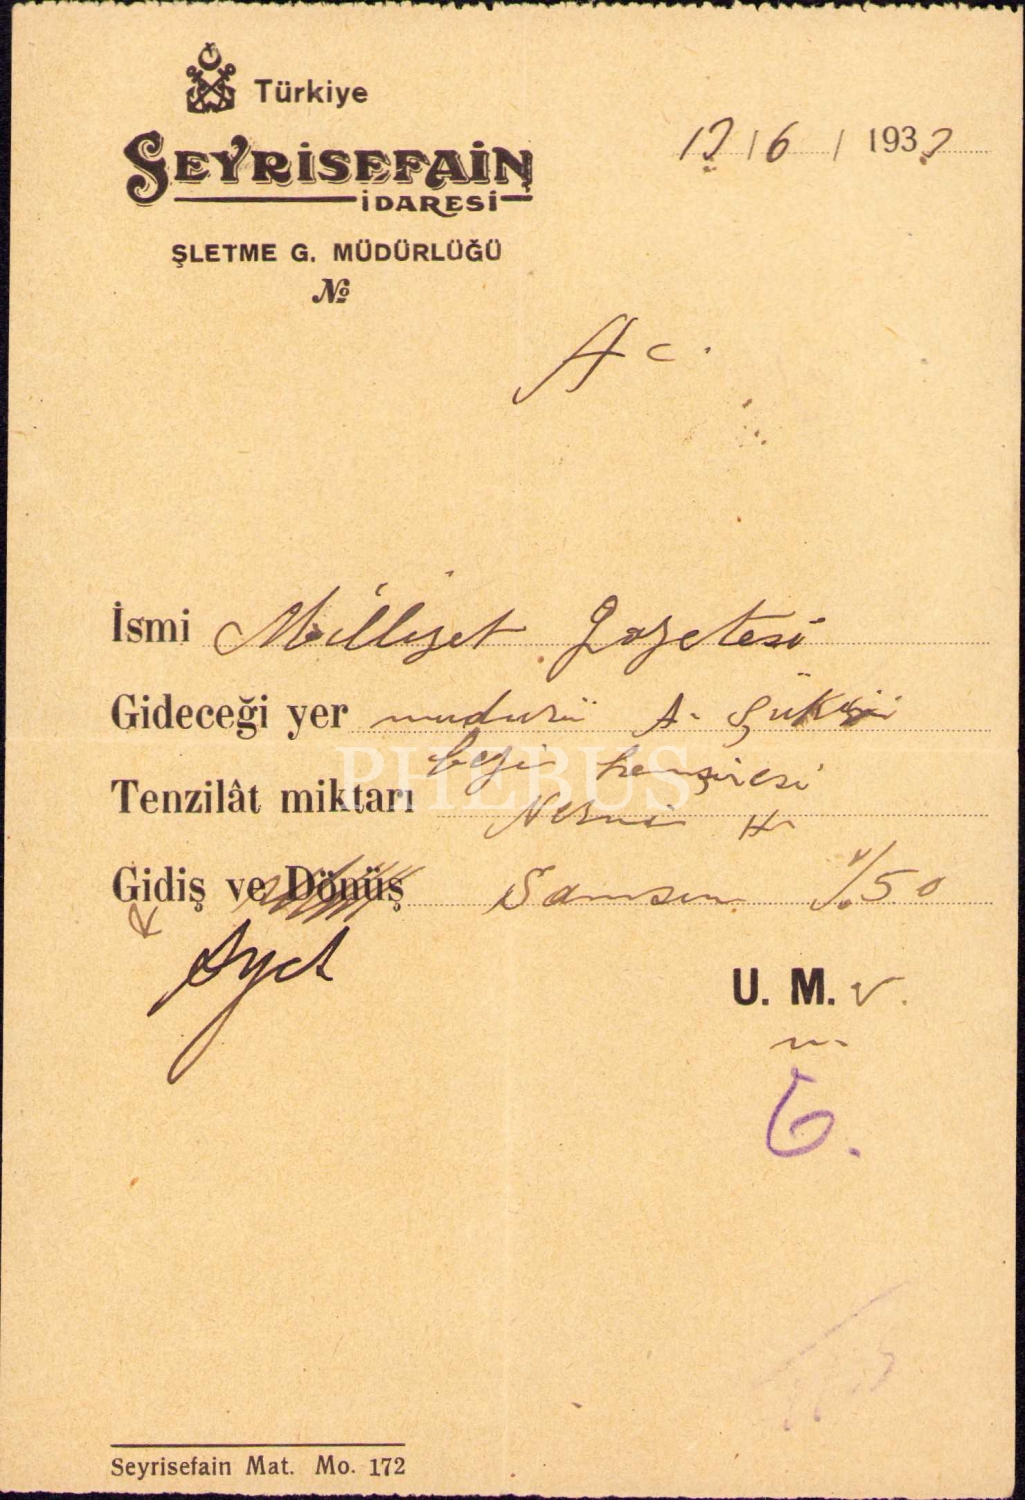 Türkiye
SEYRİSEFAİN
İDARESİ
ŞLETME G. MÜDÜRLÜĞÜ
№
12 / 6 / 1932
A c.
İsmi Milliyet Gazetesi
Gideceği yer muduru A. Şükrü
beyin hemşiresi
Tenzilât miktarı
H
Gidiş ve Dönüş Samsun % 50
U. M. V.
Seyrisefain Mat. Mo. 172
PHEBUS